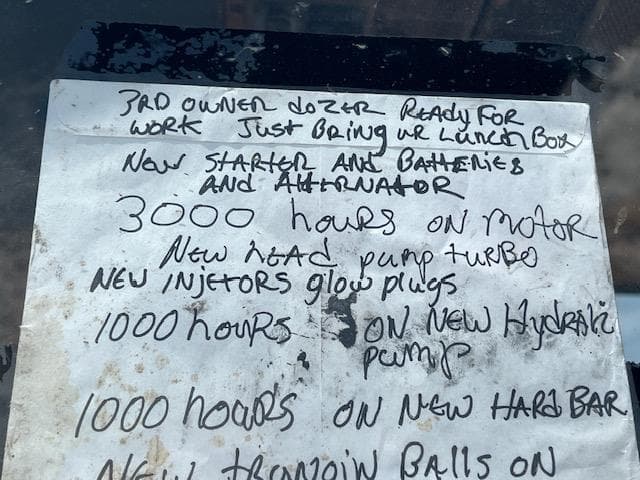 3RD OWNER dozER READY FOR
WORK Just BRing UR LUNCH Box
New STARTER AND BATTERIES
AND AltERNATOR
3000 hours ON motoR
New head pump tuRBO
NEW INjetORS glow plugs
1000 houRs ON NEW
pump
1000 houRs ON NEW HARd BAR
NEW BAlls ON